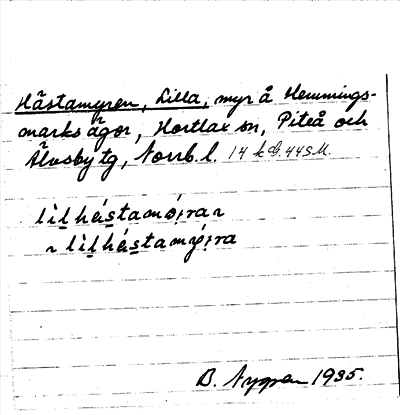 Hästamyren, Lilla, myr å Hemmings-
marks ägor, Hortlax sn, Piteå och
Älvsby tg, Norrb. l. 14 k
lìlhástamøjra ~
~ lìlhástamýjra
B. Nygren 1935.